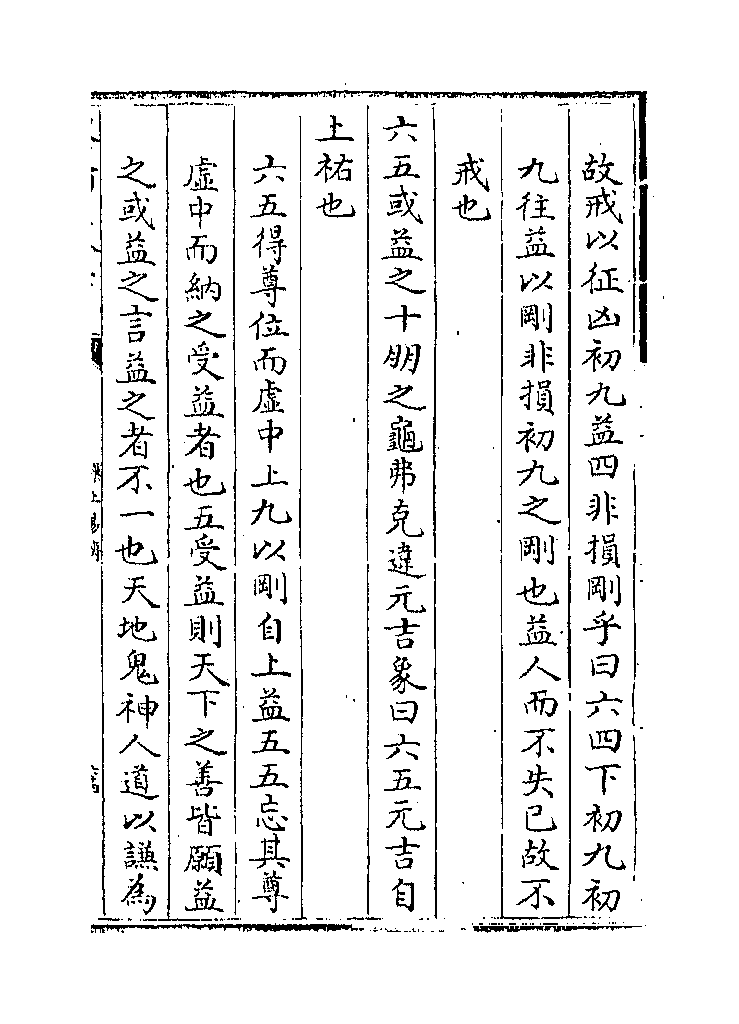 故戒以征凶初九益四非損剛乎曰六四下初九初
九往益以剛非損初九之剛也益人而不失已故不
戒也
六五或益之十朋之龜弗克違元吉象曰六五元吉自
上祐也
六五得尊位而虛中上九以剛自上益五五忘其尊
虛中而納之受益者也五受益則天下之善皆願益
之或益之言益之者不一也天地鬼神人道以謙為